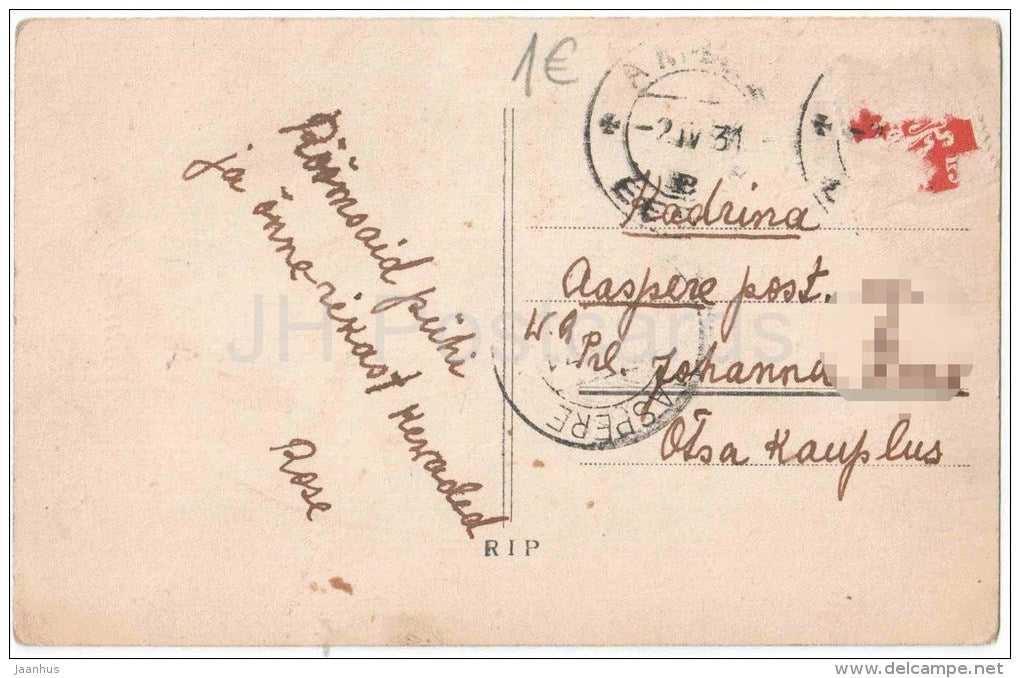 1€
-2.IV 31
EE
Rõõmsaid pühi
ja õnne rikast Kewaded
Rose
Kadrina
Aaspere post.
W. A
Prl. Johanna
Otsa Kauplus
ASPERE
RIP
JH Postcards
jaanhus
www.delcampe.net